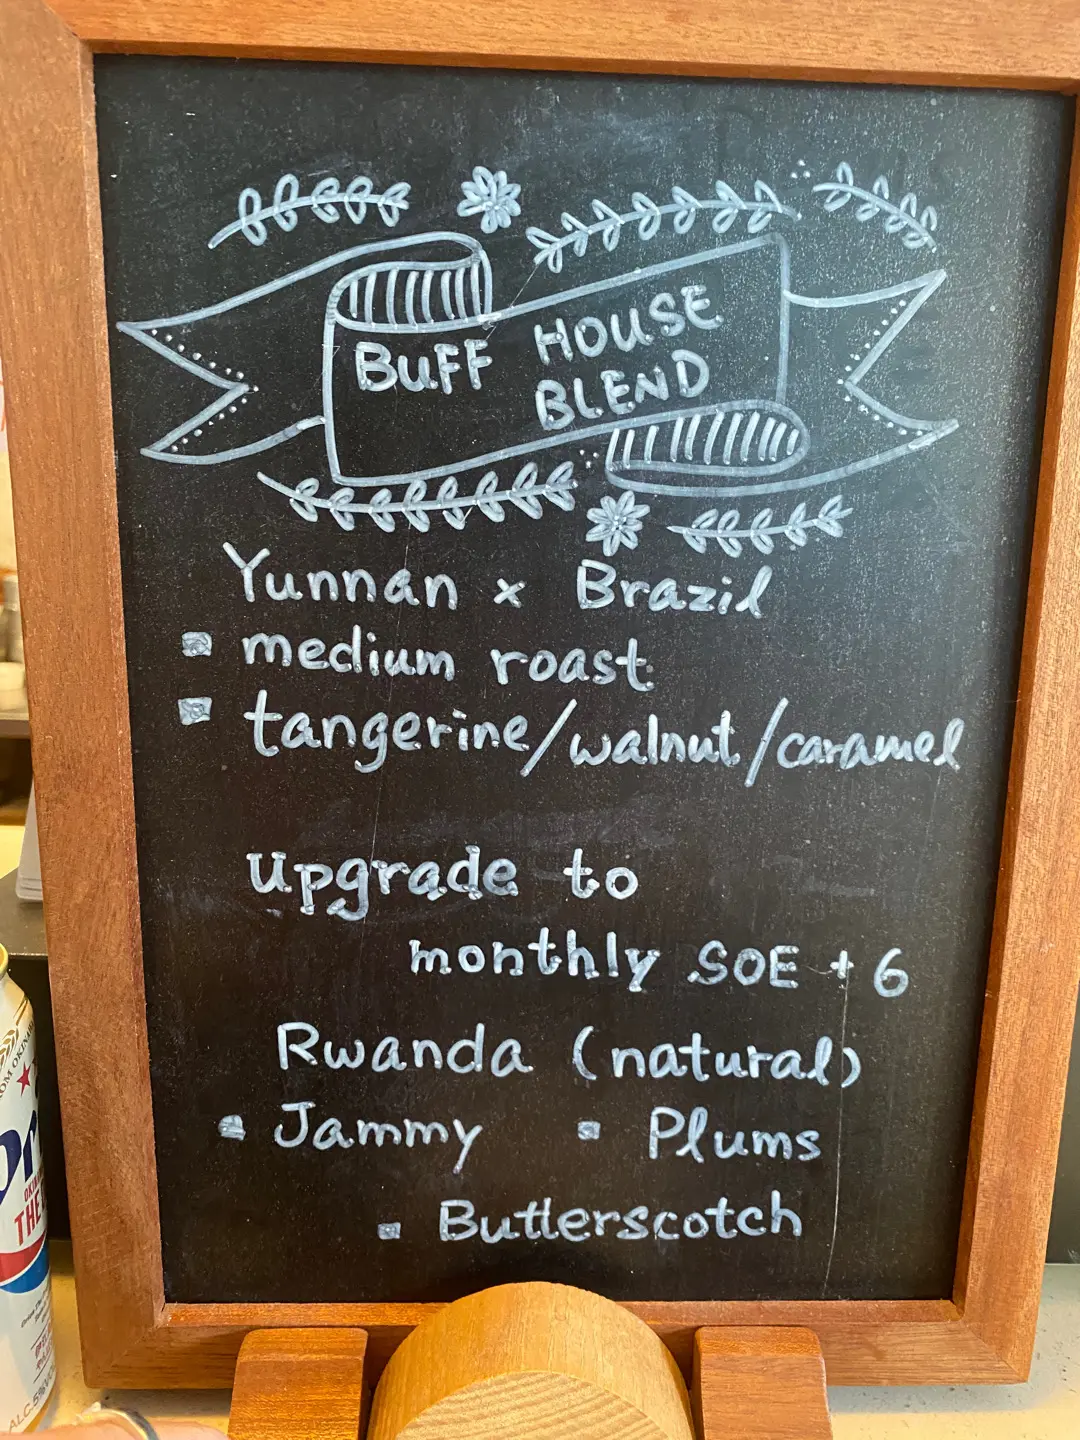 BUFF HOUSE
BLEND
Yunnan x Brazil
▪ medium roast
▪ tangerine/walnut/caramel
upgrade to
monthly SOE + 6
Rwanda (natural)
▪ Jammy ▪ Plums
▪ Butterscotch
THE
ALC.5%